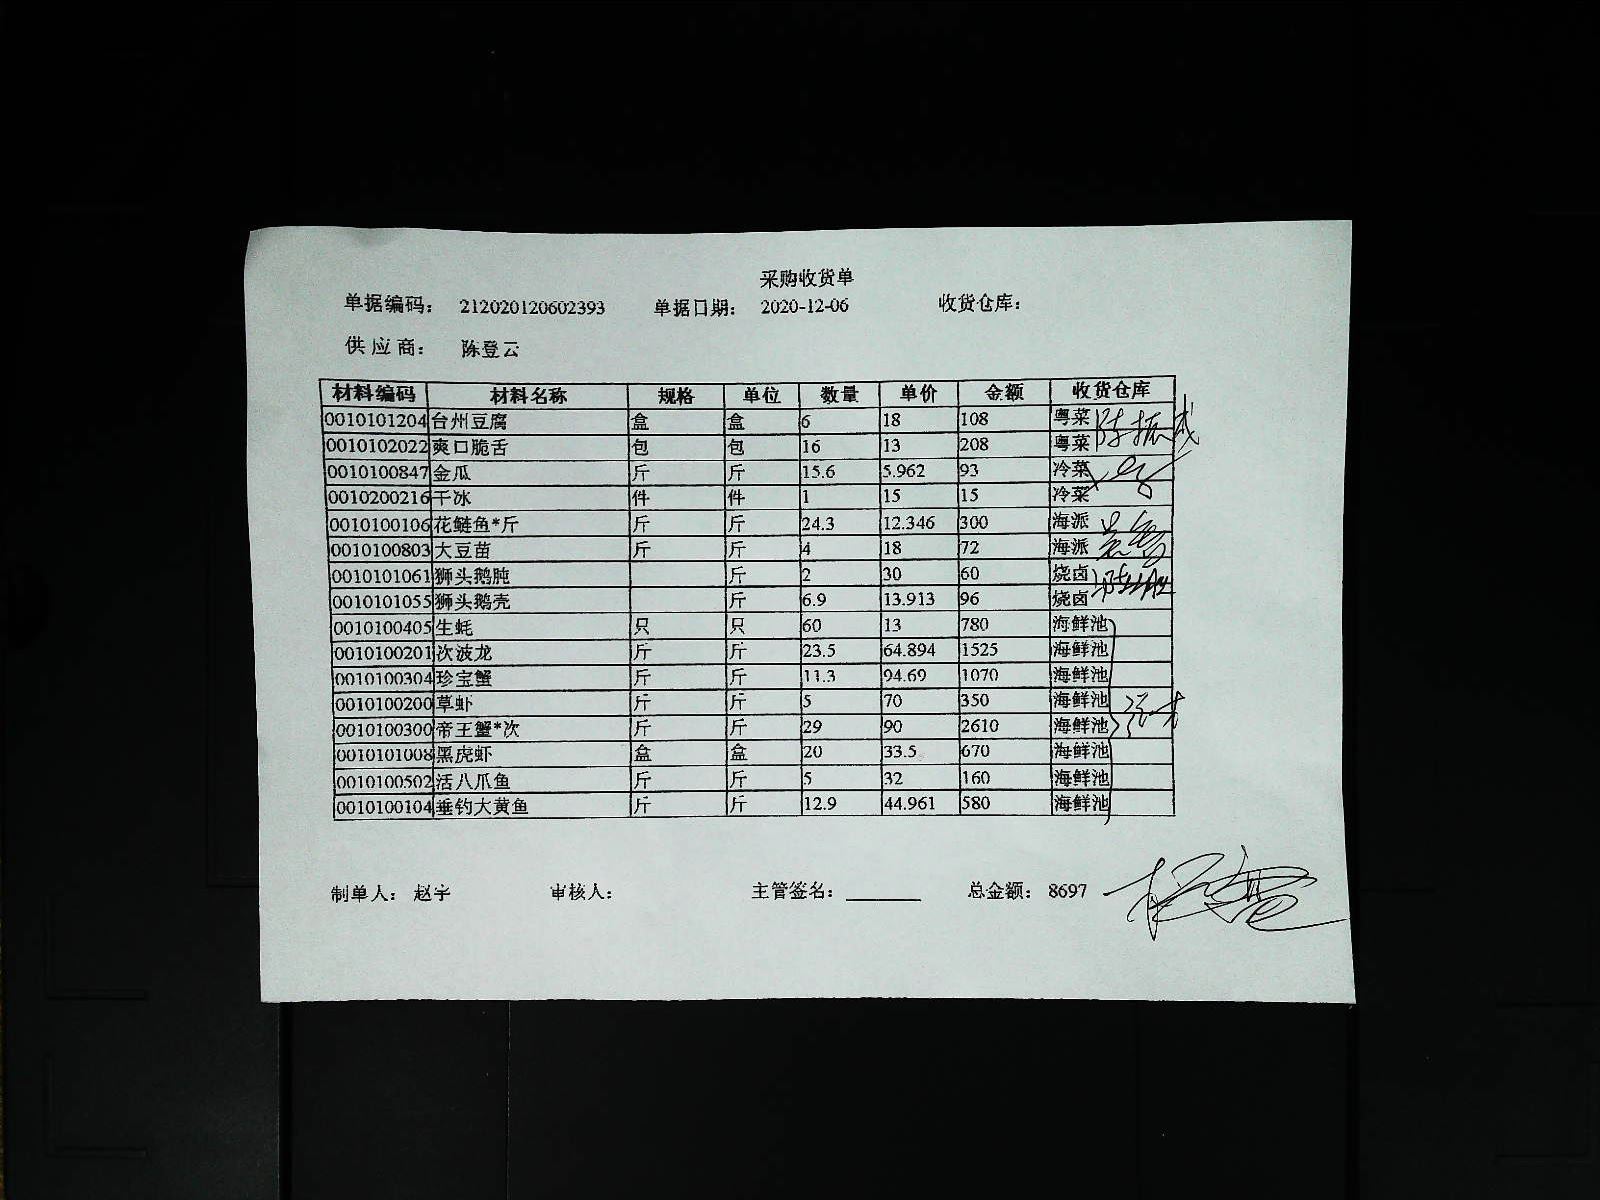 采购收货单
单据编码： 212020120602393 单据日期： 2020-12-06 收货仓库：
供应商： 陈登云
材料编码 材料名称 规格 单位 数量 单价 金额 收货仓库
0010101204 台州豆腐 盒 盒 6 18 108 粤菜
0010102022 爽口脆舌 包 包 16 13 208 粤菜
0010100847 金瓜 斤 斤 15.6 5.962 93 冷菜
0010200216 干冰 件 件 1 15 15 冷菜
0010100106 花鲢鱼*斤 斤 斤 24.3 12.346 300 海派
0010100803 大豆苗 斤 斤 4 18 72 海派
0010101061 狮头鹅肫 斤 2 30 60 烧卤
0010101055 狮头鹅壳 斤 6.9 13.913 96 烧卤
0010100405 生蚝 只 只 60 13 780 海鲜池
0010100201 次波龙 斤 斤 23.5 64.894 1525 海鲜池
0010100304 珍宝蟹 斤 斤 11.3 94.69 1070 海鲜池
0010100200 草虾 斤 斤 5 70 350 海鲜池
0010100300 帝王蟹*次 斤 斤 29 90 2610 海鲜池
0010101008 黑虎虾 盒 盒 20 33.5 670 海鲜池
0010100502 活八爪鱼 斤 斤 5 32 160 海鲜池
0010100104 垂钓大黄鱼 斤 斤 12.9 44.961 580 海鲜池
制单人： 赵宇 审核人： 主管签名： 总金额： 8697